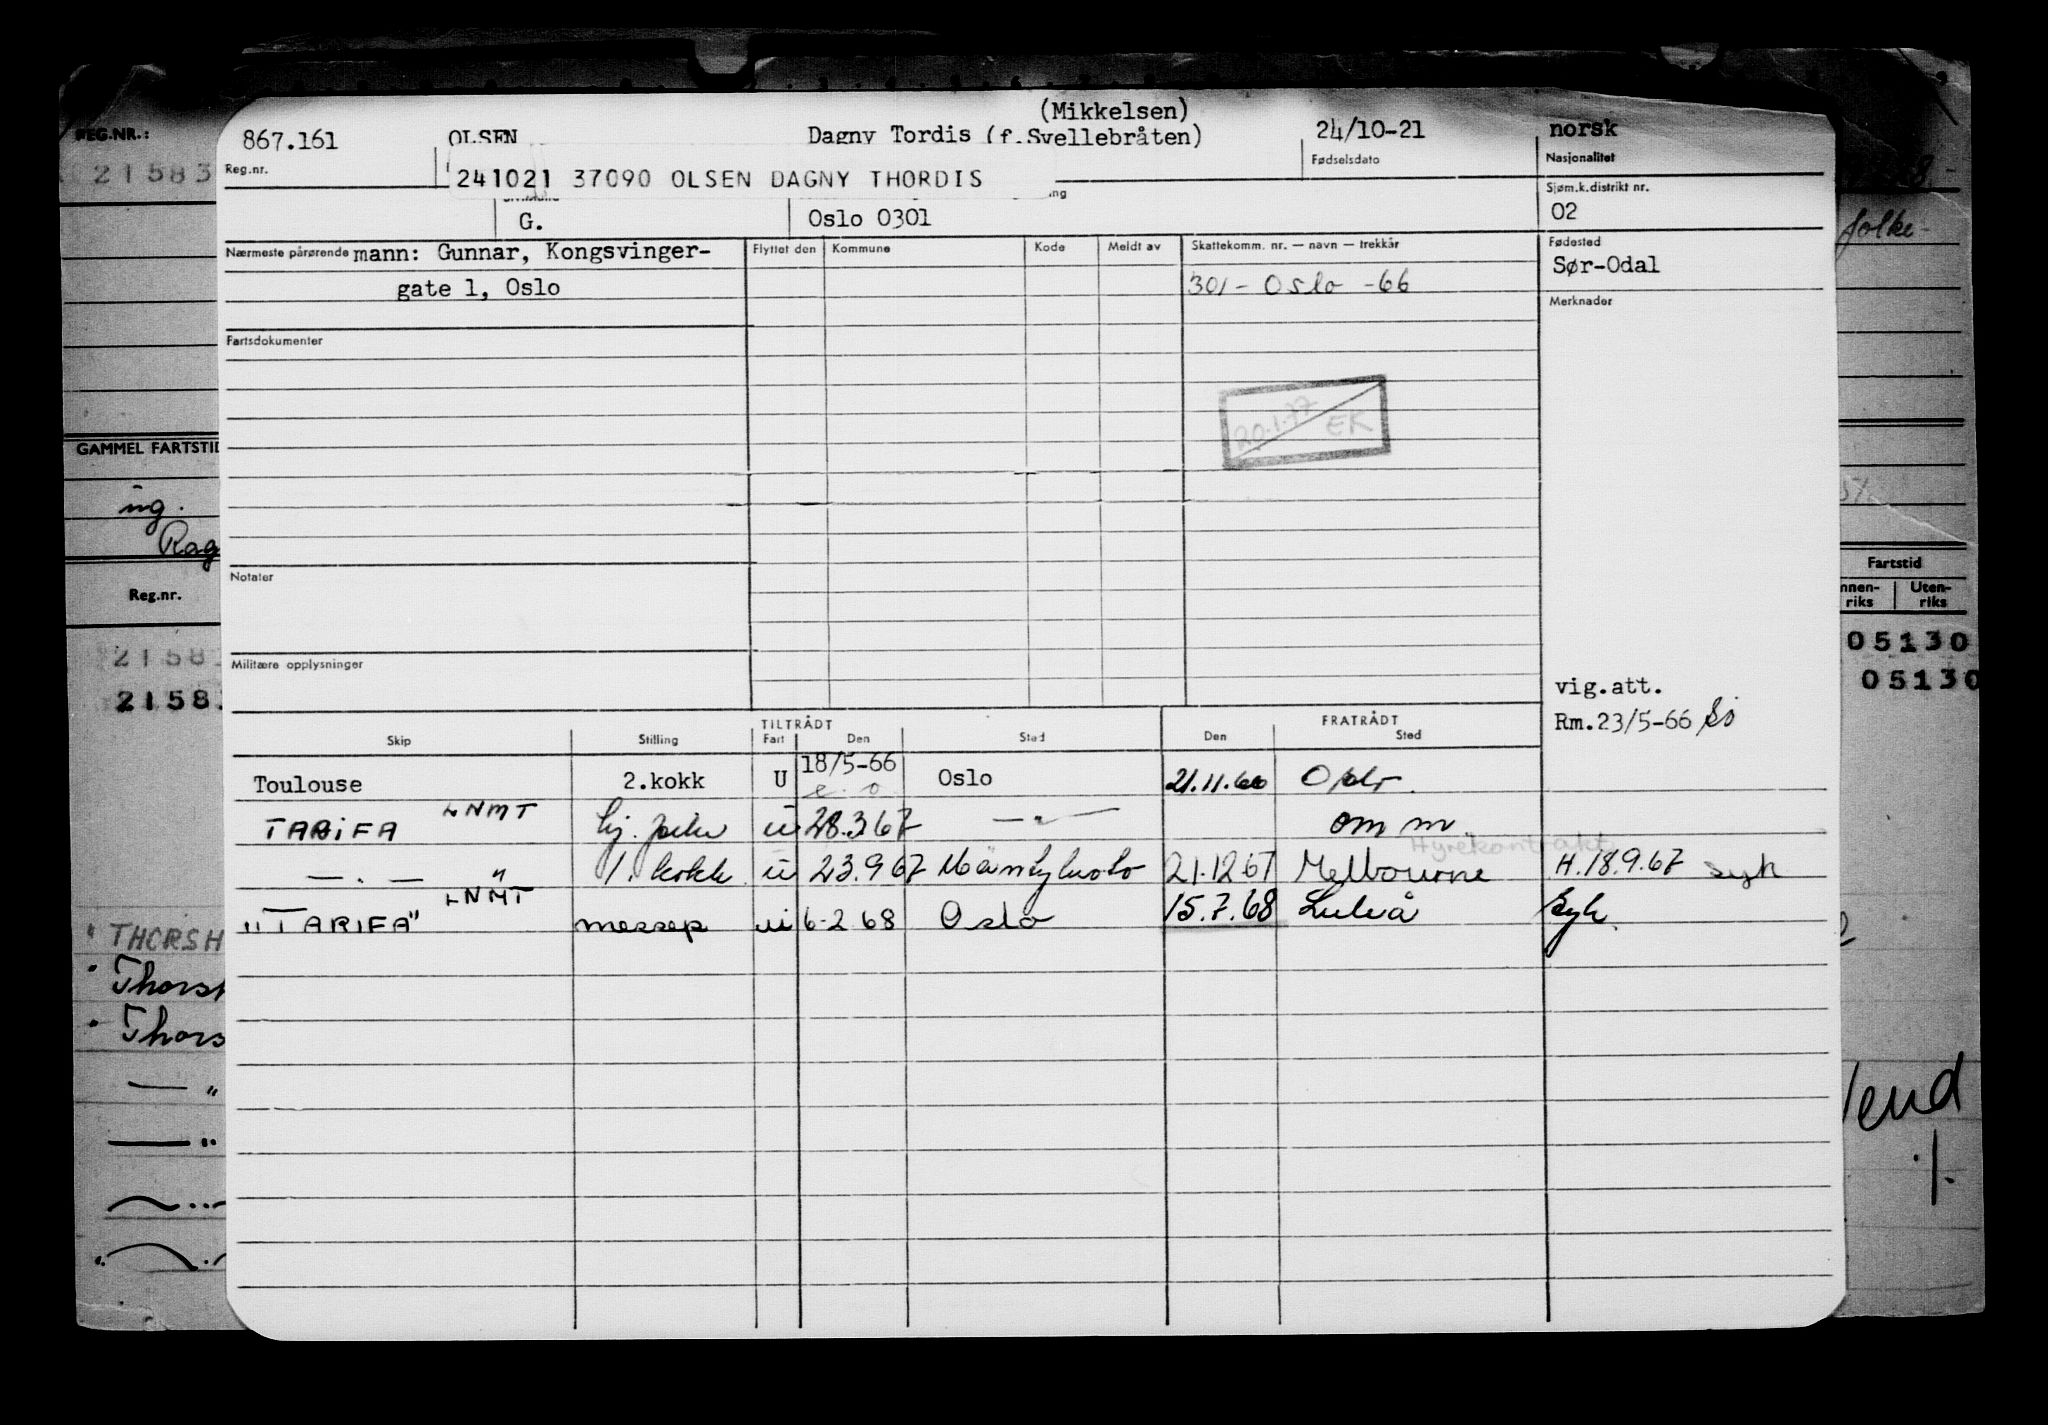 (Mikkelsen)
867.161 OLSEN Dagny Tordis (f.Svellebråten) 24/10-21 norsk
Reg.nr. Fødselsdato Nasjonalitet
241021 37090 OLSEN DAGNY THORDIS
Sjøm.k.distrikt nr.
G. Oslo 0301 02
Nærmeste pårørende mann: Gunnar, Kongsvinger-
gate 1, Oslo
Flyttet den Kommune Kode Meldt av Skattekomm. nr. — navn — trekkår
301 - Oslo -66
Fødested
Sør-Odal
Merknader
Fartsdokumenter
20.1.77 EK
Notater
Militære opplysninger
vig.att.
Rm.23/5-66
TILTRÅDT FRATRÅDT
Skip Stilling Fart Den Sted Den Sted
Toulouse 2.kokk U 18/5-66 Oslo 21.11.66 Oslo
e. o
TARIFA LNMT u 28.3 67 — " — om m
Hyrekontrakt
— . — " 1. kokk u 23.9 67 Mäntyluoto 21.12 67 Melbourne H. 18.9.67 syk
"TARIFA" LNMT messep u 6-2 68 Oslo 15.7.68 Luleå Syk.
REG.NR.:
21583
GAMMEL FARTSTID
ing.
Rag
Reg.nr.
2158
2158
" THORSH
" Thorsh
" Thors
— "
— "
folke-
Fartstid
nnen-
riks
Uten-
riks
05130
05130